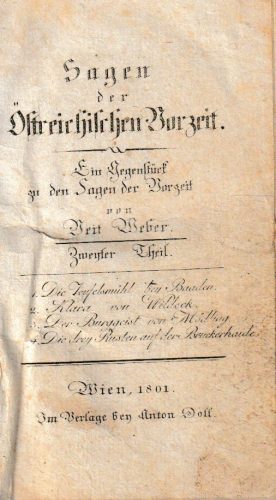 Sagen
der
Östreichischen Vorzeit.
Ein Gegenstück
zu den Sagen der Vorzeit
von
Veit Weber.
Zweyter Theil.
1. Die Teufelsmühl bey Baaden.
2. Klara von Wildeck.
3. Der Burggeist von
4. Die drey Säulen auf der Bruckerhaide.
Wien, 1801.
Im Verlage bey Anton Doll.